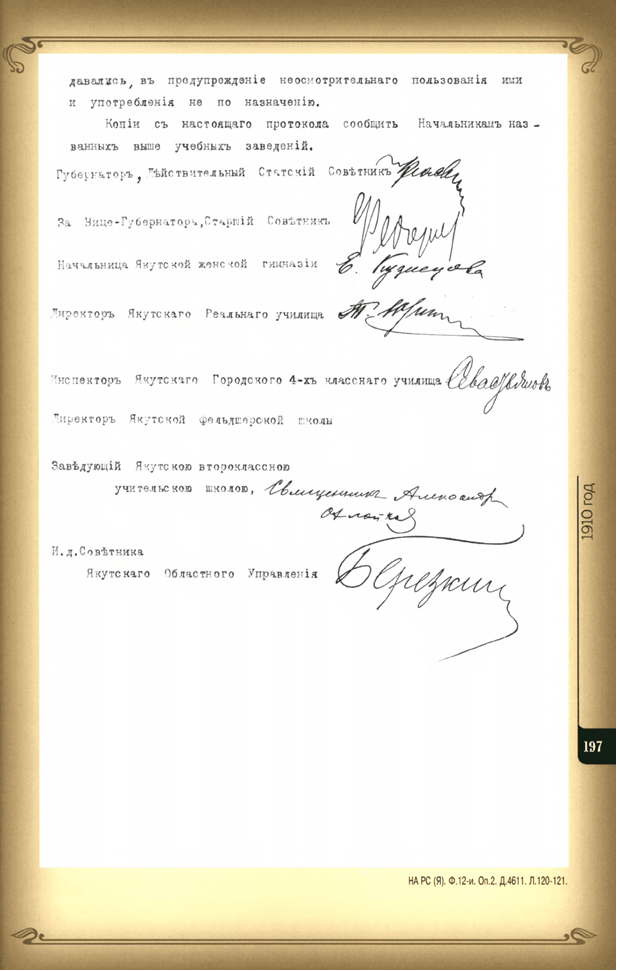 давались, въ предупрежденіе неосмотрительнаго пользованія ими
и употребленія не по назначенію.
Копіи съ настоящаго протокола сообщить Начальникамъ наз-
ванныхъ выше учебныхъ заведеній.
Губернаторъ, Дѣйствительный Статскій Совѣтникъ
За Вице-Губернатора, Старшій Совѣтникъ
Начальница Якутской женской гимназіи Е. Кузнецова
Директоръ Якутскаго Реальнаго училища
Инспекторъ Якутскаго Городского 4-хъ класснаго училища Севастьяновъ
Директоръ Якутской фельдшерской школы
Завѣдующій Якутскою второклассною
учительскою школою, Священникъ Александръ
И.д.Совѣтника
Якутскаго Областного Управленія Березкин
1910 год
197
НА РС (Я). Ф.12-и. Оп.2. Д.4611. Л.120-121.